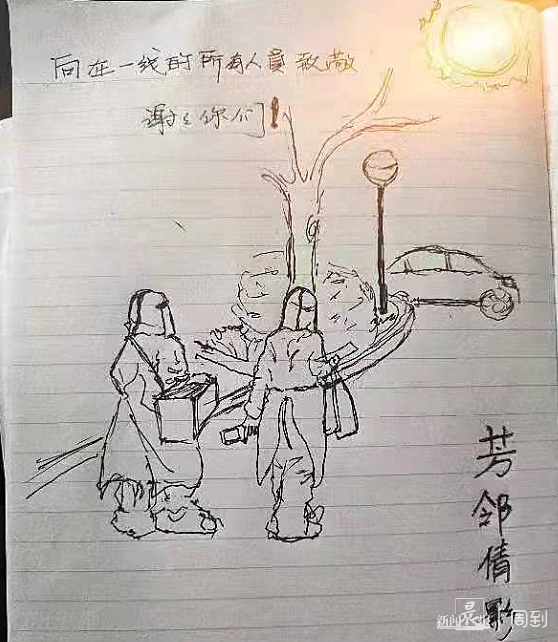 向在一线的所有人员致敬
谢谢你们!
芳邻倩影
新闻晨报 周到